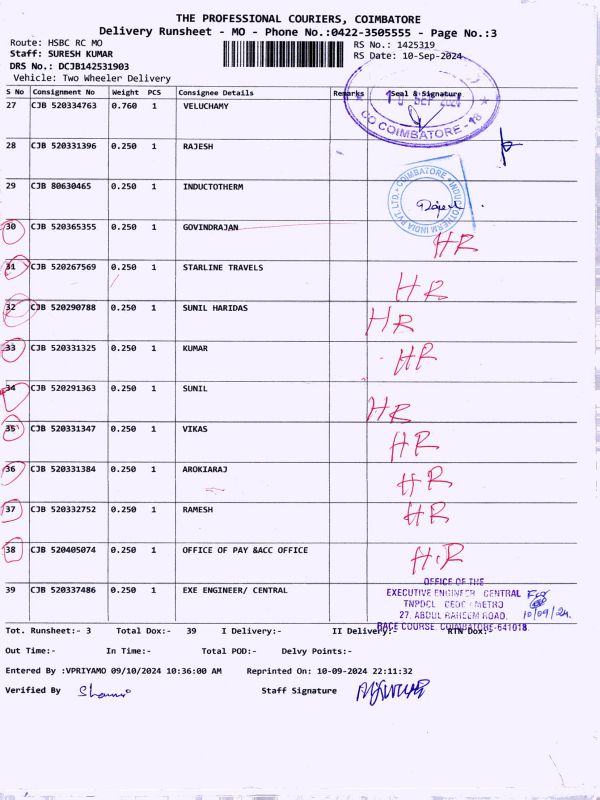 THE PROFESSIONAL COURIERS, COIMBATORE
Delivery Runsheet - MO - Phone No.:0422-3505555 - Page No.:3
Route: HSBC RC MO RS No.: 1425319
Staff: SURESH KUMAR RS Date: 10-Sep-2024
DRS No.: DCJB142531903
Vehicle: Two Wheeler Delivery
S No Consignment No Weight PCS Consignee Details Remarks Seal & Signature
27 CJB 520334763 0.760 1 VELUCHAMY
SEP
COIMBATORE - 18
28 CJB 520331396 0.250 1 RAJESH
29 CJB 80630465 0.250 1 INDUCTOTHERM
INDUCTOTHERM INDIA PVT. LTD. COIMBATORE
30 CJB 520365355 0.250 1 GOVINDRAJAN
HR
31 CJB 520267569 0.250 1 STARLINE TRAVELS
HR
32 CJB 520290788 0.250 1 SUNIL HARIDAS
HR
33 CJB 520331325 0.250 1 KUMAR
HR
34 CJB 520291363 0.250 1 SUNIL
HR
35 CJB 520331347 0.250 1 VIKAS
HR
36 CJB 520331384 0.250 1 AROKIARAJ
HR
37 CJB 520332752 0.250 1 RAMESH
HR
38 CJB 520405074 0.250 1 OFFICE OF PAY &ACC OFFICE
H.R
39 CJB 520337486 0.250 1 EXE ENGINEER/ CENTRAL
OFFICE OF THE
EXECUTIVE ENGINEER CENTRAL
TNPDCL CEDC METRO
27, ABDUL RAHEEM ROAD,
RACE COURSE, COIMBATORE-641018.
10/09/24.
Tot. Runsheet:- 3 Total Dox:- 39 I Delivery:- II Delivery:- RTN Dox:-
Out Time:- In Time:- Total POD:- Delvy Points:-
Entered By :VPRIYAMO 09/10/2024 10:36:00 AM Reprinted On: 10-09-2024 22:11:32
Verified By Staff Signature